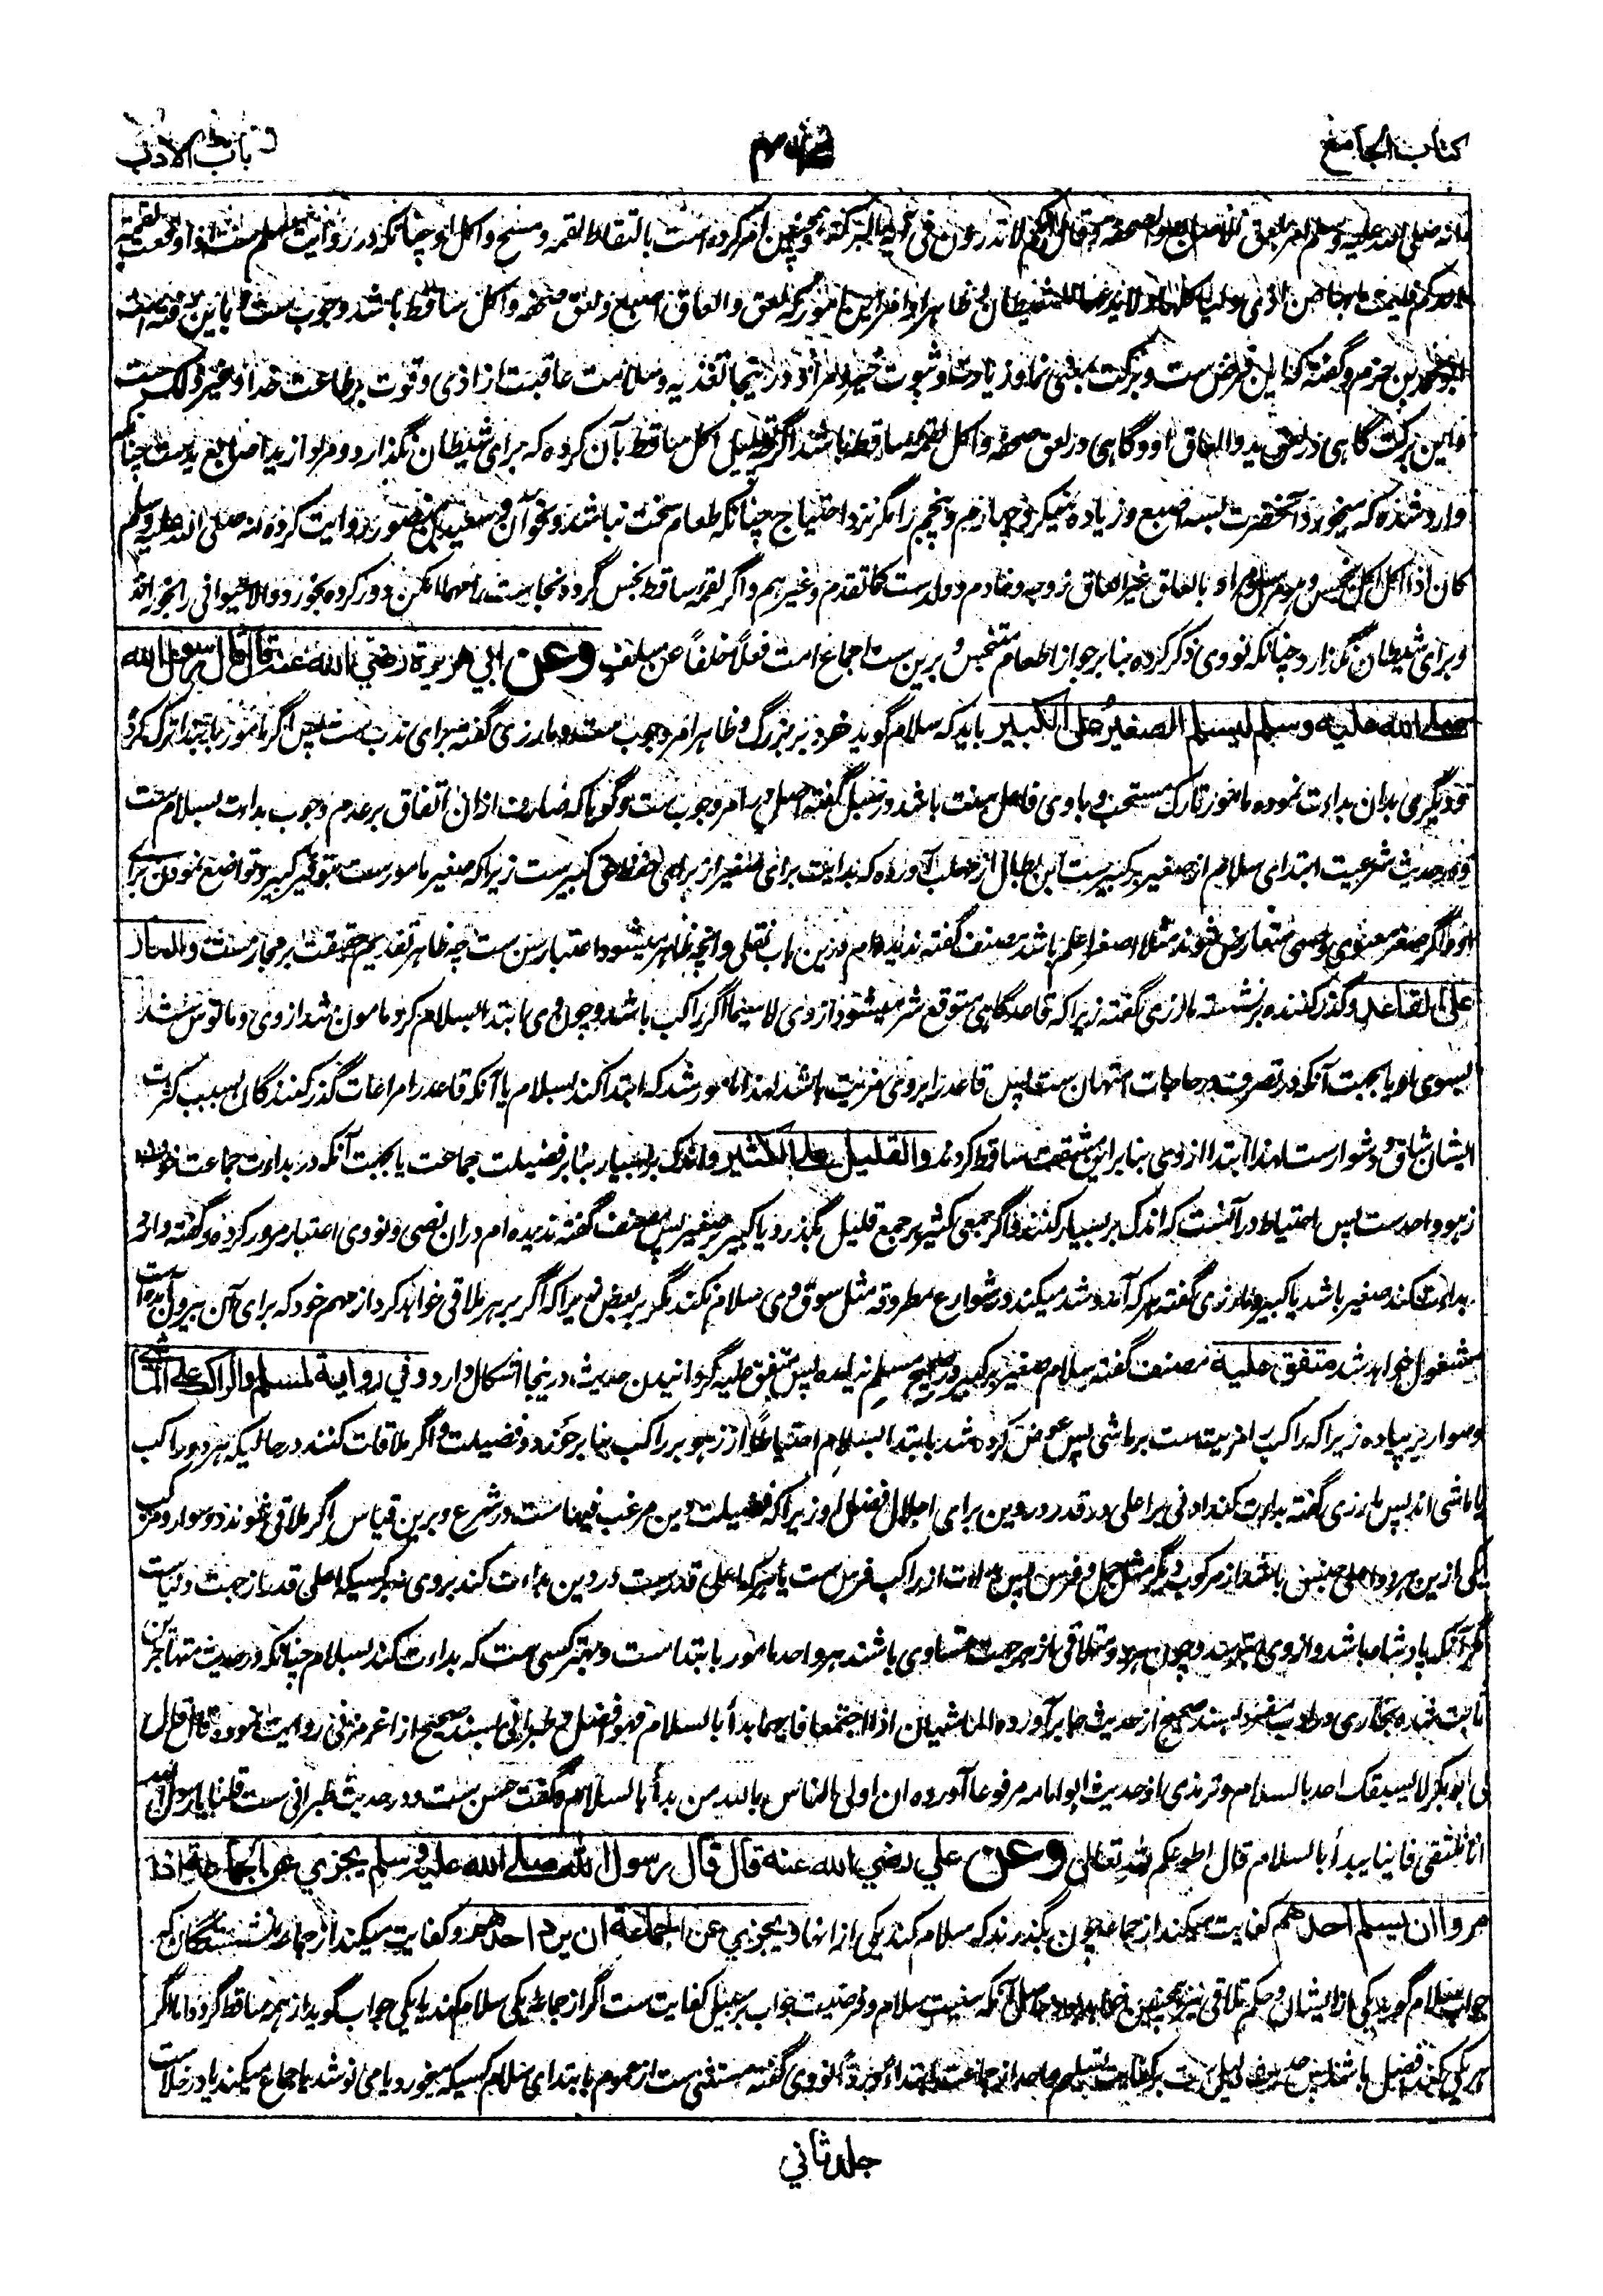 کتاب الجامع
باب الادب
صلی الله علیه وسلم امر بلعق الاصابع والصحفه وقال انکم لا تدرون فی ایه البرکة وهمچنین امر کرده است بالتقاط لقمه و مسح و اکل او چنانکه در روایت مسلم ست اذا وقعت لقمة
احدکم فلیمط ما بها من اذی ولیاکلها ولا یدعها للشیطان و ظاهر اوامر این امور که لعق و العاق اصبع و لعق صحفه و اکل ساقط باشد وجوب ست و باین رفته است
ابو محمد بن حزم و گفته که این فرض ست و برکت بمعنی نما و زیادت و ثبوت خیر و مراد در اینجا تغذیه و سلامت عاقبت از اذی و قوت بر طاعت خدا و غیر ذلک ست
و این برکت گاهی در لعق ید و العاق او و گاهی در لعق صحفه و اکل لقمه ساقط باشد اگرچه تعلیل اکل ساقط بآن کرده که برای شیطان نگذارد و مراد از ید اصابع ید ست چنانکه
وارد شده که میخورد آنحضرت بسه اصبع و زیاده نمیکرد چهارم و پنجم را مگر نزد احتیاج چنانکه طعام سخت نباشد و نحو آن و سعید بن منصور روایت کرده انه صلی الله علیه وسلم
کان اذا اکل اکل بخمس و مرسل و او بالعاق غیر العاق زوجه و خادم و ولد ست کما تقدم و غیرهم و اگر لقمه ساقط نجس گردد نجاست را مهما امکن دور کرده بخورد والا حیوانی را بخوراند
و برای شیطان نگذارد چنانکه نووی ذکر کرده بنا بر جواز اطعام متنجس و برین ست اجماع امت فعلاً خلفاً عن سلف وعن ابی هریرة رضی الله عنه قال قال رسول الله
صلی الله علیه وسلم لیسلم الصغیر علی الکبیر باید که سلام گوید خرد بر بزرگ و ظاهر امر وجوب ست و مازری گفته برای ندب ست پس اگر مامور بابتدا ترک کرد
و دیگری بدان بداءت نموده مامور تارک مستحب و بادی فاعل سنت باشد در سبل گفته اصل در امر وجوب ست و گویا که صارف ازان اتفاق بر عدم وجوب بداءت بسلام ست
و در حدیث شرعیت ابتدای سلام از صغیر بر کبیر ست ابن بطال از مهلب آورده که بداءت برای صغیر از برای حق کبیر ست زیرا که صغیر مامور ست بتوقیر کبیر و تواضع نمودن برای
او و اگر صغر معنوی و حسی متعارض شوند مثلا اصغر اعلم باشد مصنف گفته ندیده‌ام درین باب نقلی و آنچه ظاهر میشود اعتبار سن ست چه ظاهر تقدیم حقیقت بر مجاز ست والمار
علی القاعد و گذر کننده بر نشسته مازری گفته زیرا که قاعد گاهی متوقع شر میشود از وی لا سیما اگر راکب باشد و چون وی ابتدا بسلام کرد مامون شد از وی و مانوس شد
بسوی او یا بجهت آنکه در تصرف در حاجات امتهان ست پس قاعد را بروی مزیت باشد لهذا مامور شد که ابتدا کند بسلام یا آنکه قاعد را مراعات گذر کنندگان بسبب کثرت
ایشان شاق و دشوار ست لهذا ابتدا از وی بنا بر این مشقت ساقط کردند والقلیل علی الکثیر و اندک بر بسیار بنا بر فضیلت جماعت یا بجهت آنکه در بداءت جماعت خوف
زهو واحد ست پس احتیاط در آنست که اندک بر بسیار کنند و اگر جمعی کثیر بر جمع قلیل بگذرد یا کبیر بر صغیر پس مصنف گفته ندیده‌ام دران نصی و نووی اعتبار مرور کرده و گفته وارد
بداءت کند صغیر باشد یا کبیر و مازری گفته هر که آمد و شد میکند در شوارع مطروقه مثل سوق وی سلام نکند مگر بر بعض زیرا که اگر بر هر ملاقی خواهد کرد از مهم خود که برای آن بیرون آمده است
مشغول خواهد شد متفق علیه مصنف گفته سلام صغیر بر کبیر در صحیح مسلم نیامده پس متفق علیه گردانیدن حدیث درینجا اشکال دارد وفی روایة لمسلم والراکب علی الماشی
و سوار بر پیاده زیرا که راکب را مزیت ست بر ماشی پس عوض کرده شد بابتدا بسلام احتیاطاً از زهو بر راکب بنا بر حوز دو فضیلت و اگر ملاقات کنند در حالیکه هر دو راکب
یا ماشی اند پس مازری گفته بداءت کند ادنی بر اعلی در قدر در دین برای اجلال فضل او زیرا که فضیلت دین مرغب فیها ست در شرع و برین قیاس اگر ملاقی شوند دو سوار و مرکب
یکی ازین هر دو اعلی جنس باشد از مرکوب دیگر مثل جمل و فرس پس بداءت از راکب فرس ست یا هر که اعلی قدر ست در دین بداءت کند بروی نه بر کسیکه اعلی قدر از جهت دنیا ست
مگر آنکه پادشاه باشد و از وی بترسد و چون هر دو متلاقی از هر جهت متساوی باشند هر واحد مامور بابتدا ست و بهتر کسی ست که بداءت کند بسلام چنانکه در حدیث متهاجرین
ثابت شده بخاری در ادب مفرد بسند صحیح از حدیث جابر آورده الماشیان اذا اجتمعا فایهما بدأ بالسلام فهو افضل و طبرانی بسند صحیح از اغر مزنی روایت نموده قال قال
لی ابو بکر لا یسبقک احد بالسلام و ترمذی از حدیث ابو امامه مرفوعا آورده ان اولی الناس بالله من بدأ بالسلام و گفت حسن ست و در حدیث طبرانی ست قلنا یا رسول الله
انا نلتقی فاینا یبدأ بالسلام قال اطوعکم لله تعالی وعن علی رضی الله عنه قال قال رسول الله صلی الله علیه وسلم یجزی عن الجماعة اذا
مروا ان یسلم احدهم کفایت میکند از جماعه چون بگذرند که سلام کند یکی از انها ویجزی عن الجماعة ان یرد احدهم و کفایت میکند از جماعه نشستگان که
جواب سلام گوید یکی از ایشان و حکم تلاقی نیز همچنین خواهد بود حاصل آنکه سنیت سلام و فرضیت جواب بر سبیل کفایت ست اگر از جماعه یکی سلام کند یا یکی جواب گوید از همه ساقط گردد اما اگر
هر یکی کند افضل باشد پس حدیث دلیل ست بر کفایت تسلیم واحد از جماعت ابتداءً و رداً نووی گفته مستثنی ست از عموم بابتدای سلام کسیکه میخورد یا می نوشد یا جماع میکند یا در خلا ست
جلد ثانی